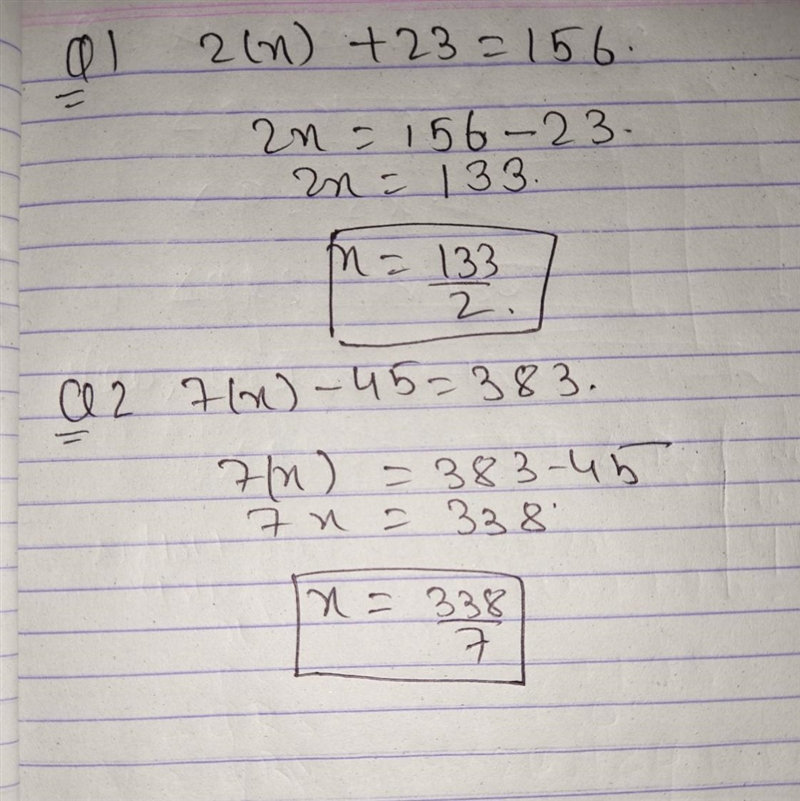 Q1 2(x) + 23 = 156.
2x = 156 - 23.
2x = 133.
x = 133/2.
Q2 7(x) - 45 = 383.
7(x) = 383 - 45
7x = 338
x = 338/7